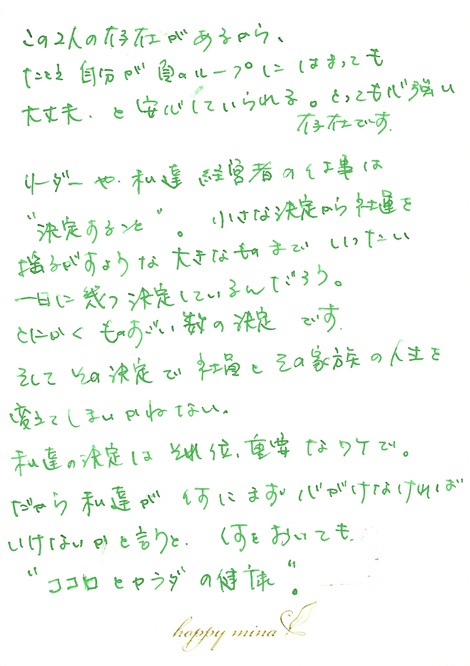 この2人の存在があるから、
たとえ自分が負のループにはまっても
大丈夫、と安心していられる。とっても心強い
存在です.
リーダーや、私達経営者の仕事は
"決定すること"。小さな決定から社運を
揺るがすような大きなものまでいったい
一日に幾つ決定しているんだろう。
とにかくものすごい数の決定です.
そしてその決定で社員とその家族の人生を
変えてしまいかねない。
私達の決定はそれ位、重要なワケで。
だから私達が何にまず心がけなければ
いけないかと言うと、何をおいても、
"ココロとカラダの健康"。
happy mina